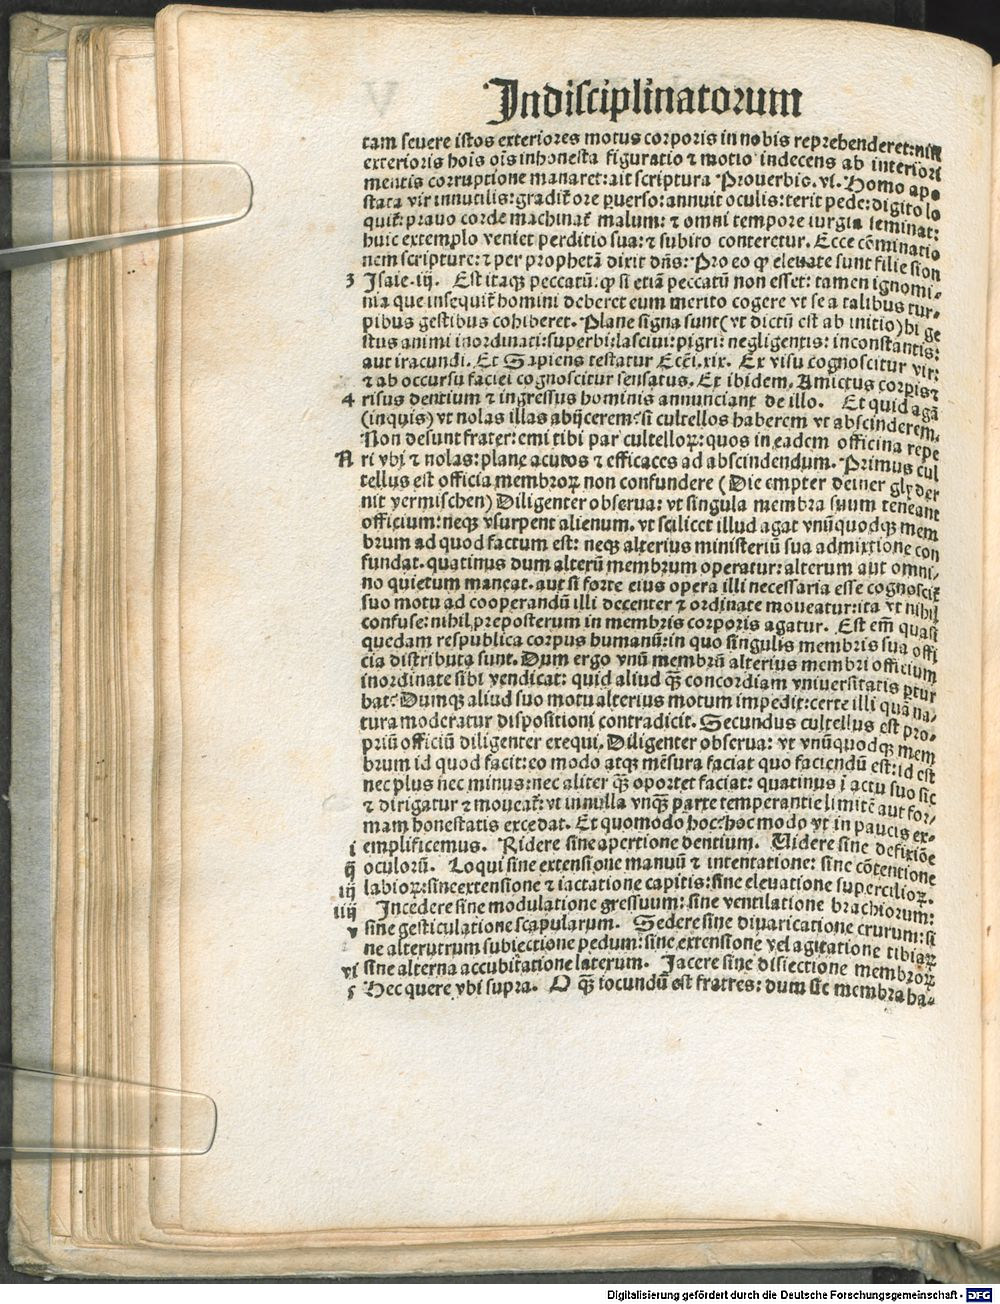 Indisciplinatorum
tam seuere istos exteriores motus corporis in nobis reprehenderet: nisi
exterioris hois ois inhonesta figuratio ⁊ motio indecens ab interiori
mentis corruptione manaret: ait scriptura Prouerbio. vi. Homo apo
stata vir innutilis: gradit̃ ore ꝑuerso: annuit oculis: terit pede: digito lo
quit̃: prauo corde machinat̃ malum: ⁊ omni tempore iurgia seminat:
huic extemplo veniet perditio sua: ⁊ subito conteretur. Ecce cõminatio
nem scripture: ⁊ per prophetã dixit dñs: Pro eo ꝙ eleuate sunt filie sion
3 Isaie. iij. Est itaqꝫ peccatũ: ꝙ si etiã peccatũ non esset: tamen ignomi⸗
nia que insequit̃ homini deberet eum merito cogere vt se a talibus tur⸗
pibus gestibus cohiberet. Plane signa sunt (vt dictũ est ab initio) hi ge
stus animi inordinati: superbi: lasciui: pigri: negligentis: inconstantis:
aut iracundi. Et Sapiens testatur Ecci. xix. Ex visu cognoscitur vir:
⁊ ab occursu faciei cognoscitur sensatus. Et ibidem. Amictus corꝑis ⁊
4 risus dentium ⁊ ingressus hominis annunciant de illo. Et quid agã
(inquis) vt nolas illas abijcerem? si cultellos haberem vt abscinderem.
Non desunt frater: emi tibi par cultelloꝝ: quos in eadem officina repe
A ri vbi ⁊ nolas: plane acutos ⁊ efficaces ad abscindendum. Primus cul
tellus est officia membroꝝ non confundere (Die empter deiner glyder
nit vermischen) Diligenter obserua: vt singula membra suum teneant
officium: neqꝫ vsurpent alienum. vt scilicet illud agat vnũquodqꝫ mem
brum ad quod factum est: neqꝫ alterius ministeriũ sua admixtione con
fundat. quatinus dum alterũ membrum operatur: alterum aut omni⸗
no quietum maneat. aut si forte eius opera illi necessaria esse cognoscit̃
suo motu ad cooperandũ illi decenter ⁊ ordinate moueatur: ita vt nihil
confuse: nihil preposterum in membris corporis agatur. Est em̃ quasi
quedam respublica corpus humanũ: in quo singulis membris sua offi
cia distributa sunt. Dum ergo vnũ membrũ alterius membri officium
inordinate sibi vendicat: quid aliud qꝫ̃ concordiam vniuersitatis ꝑtur
bat? Dumqꝫ aliud suo motu alterius motum impedit: certe illi quã na⸗
tura moderatur dispositioni contradicit. Secundus cultellus est pro⸗
priũ officiũ diligenter exequi. Diligenter obserua: vt vnũquodqꝫ mem
brum id quod facit: eo modo atqꝫ mẽsura faciat quo faciendũ est: id est
nec plus nec minus: nec aliter qꝫ̃ oportet faciat: quatinus ĩ actu suo sic
⁊ dirigatur ⁊ moueat̃: vt in nulla vnqꝫ̃ parte temperantie limitẽ aut for⸗
mam honestatis excedat. Et quomodo hoc? hoc modo vt in paucis ex⸗
i emplificemus. Ridere sine apertione dentium. Uidere sine defixiõe
ij oculorũ. Loqui sine extensione manuũ ⁊ intentatione: sine cõtentione
iij labioꝝ: sine extensione ⁊ iactatione capitis: sine eleuatione supercilioꝝ.
iiij Incedere sine modulatione gressuum: sine ventilatione brachiorum:
v sine gesticulatione scapularum. Sedere sine diuaricatione crurum: si
ne alterutrum subiectione pedum: sine extensione vel agitatione tibiaꝝ
vi sine alterna accubitatione laterum. Jacere sine disiectione membroꝝ
5 Hec quere vbi supra. O qꝫ̃ iocundũ est fratres: dum sic membra ha⸗
Digitalisierung gefördert durch die Deutsche Forschungsgemeinschaft - DFG